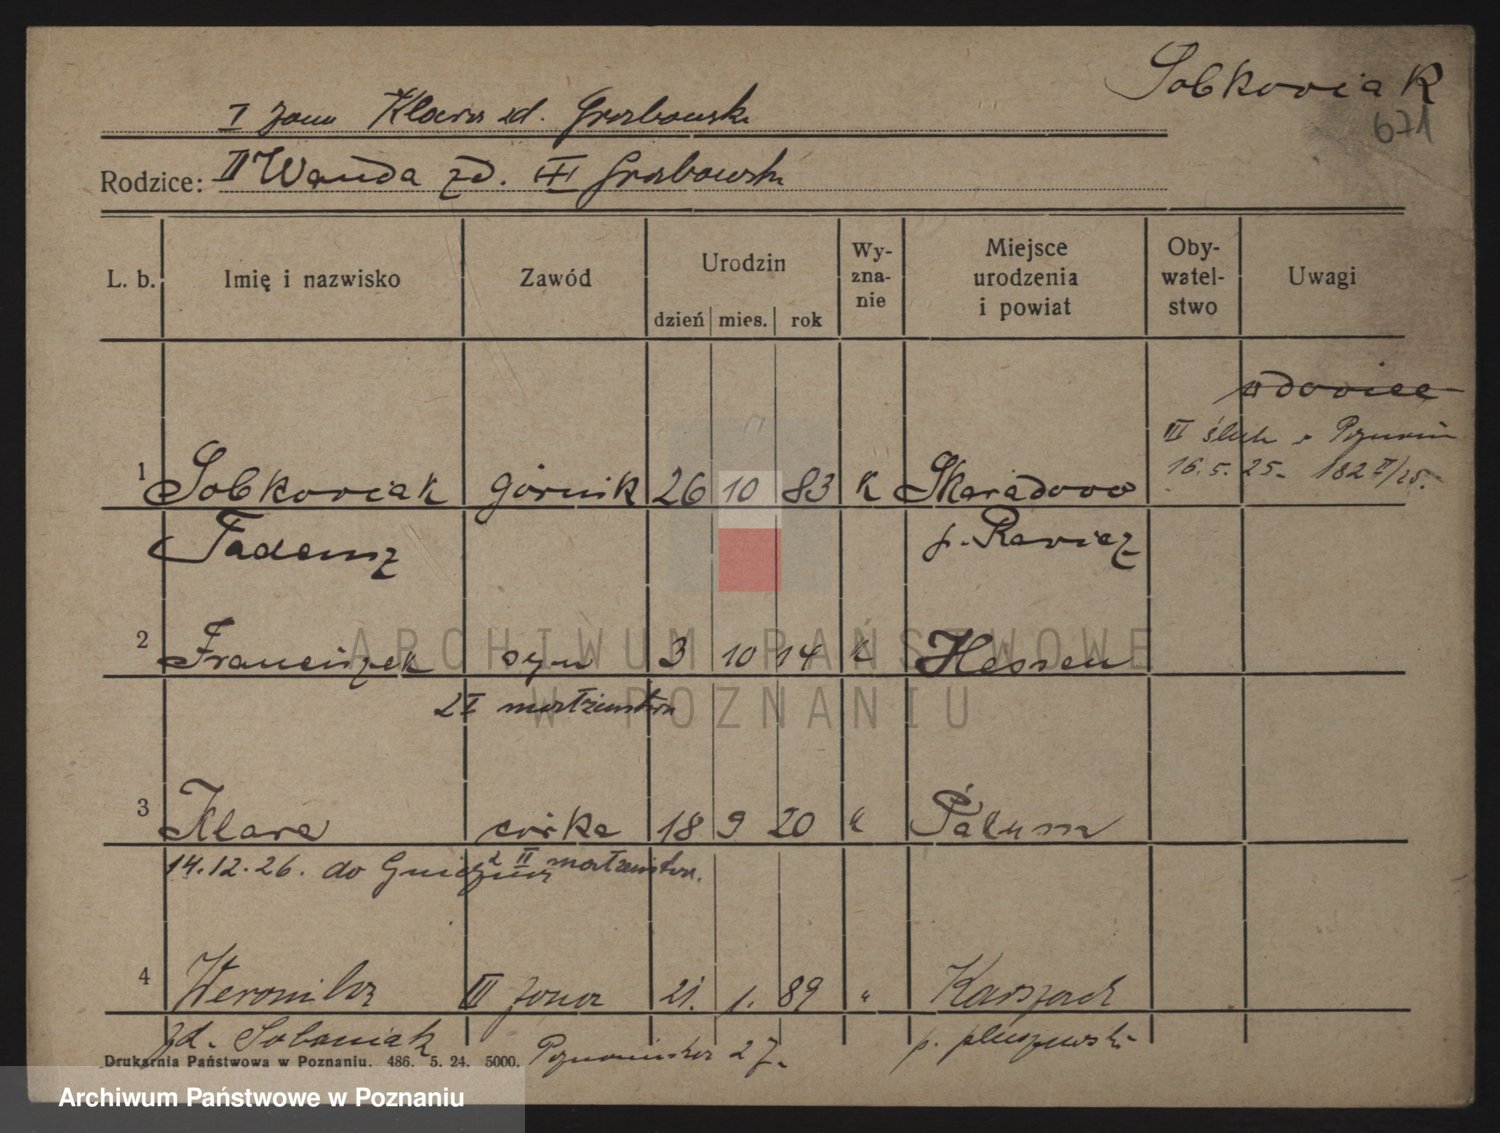 Sobkowiak
671
I żona Klara zd. Grabowsk
Rodzice: II Wanda zd. III Grabowsk
L. b. Imię i nazwisko Zawód Urodzin dzień mies. rok Wy-zna-nie Miejsce urodzenia i powiat Oby-watel-stwo Uwagi
wdowiec
III ślub w Poznaniu
16. 5. 25. 182 II/25.
1 Sobkowiak górnik 26 10 83 k Skaradowo
Tadeusz p. Rawicz
2 Franciszek syn 3 10 14 k Hessen
z I małżeństwa
3 Klara córka 18 9 20 k
14.12.26. do Gniezna z II małżeństwa.
4 Weronika III żona 21. 1. 89 "
zd. Sobaniak p. pleszewski
Drukarnia Państwowa w Poznaniu. 486. 5. 24. 5000.
Poznańska 27.
ARCHIWUM PAŃSTWOWE
W POZNANIU
Archiwum Państwowe w Poznaniu